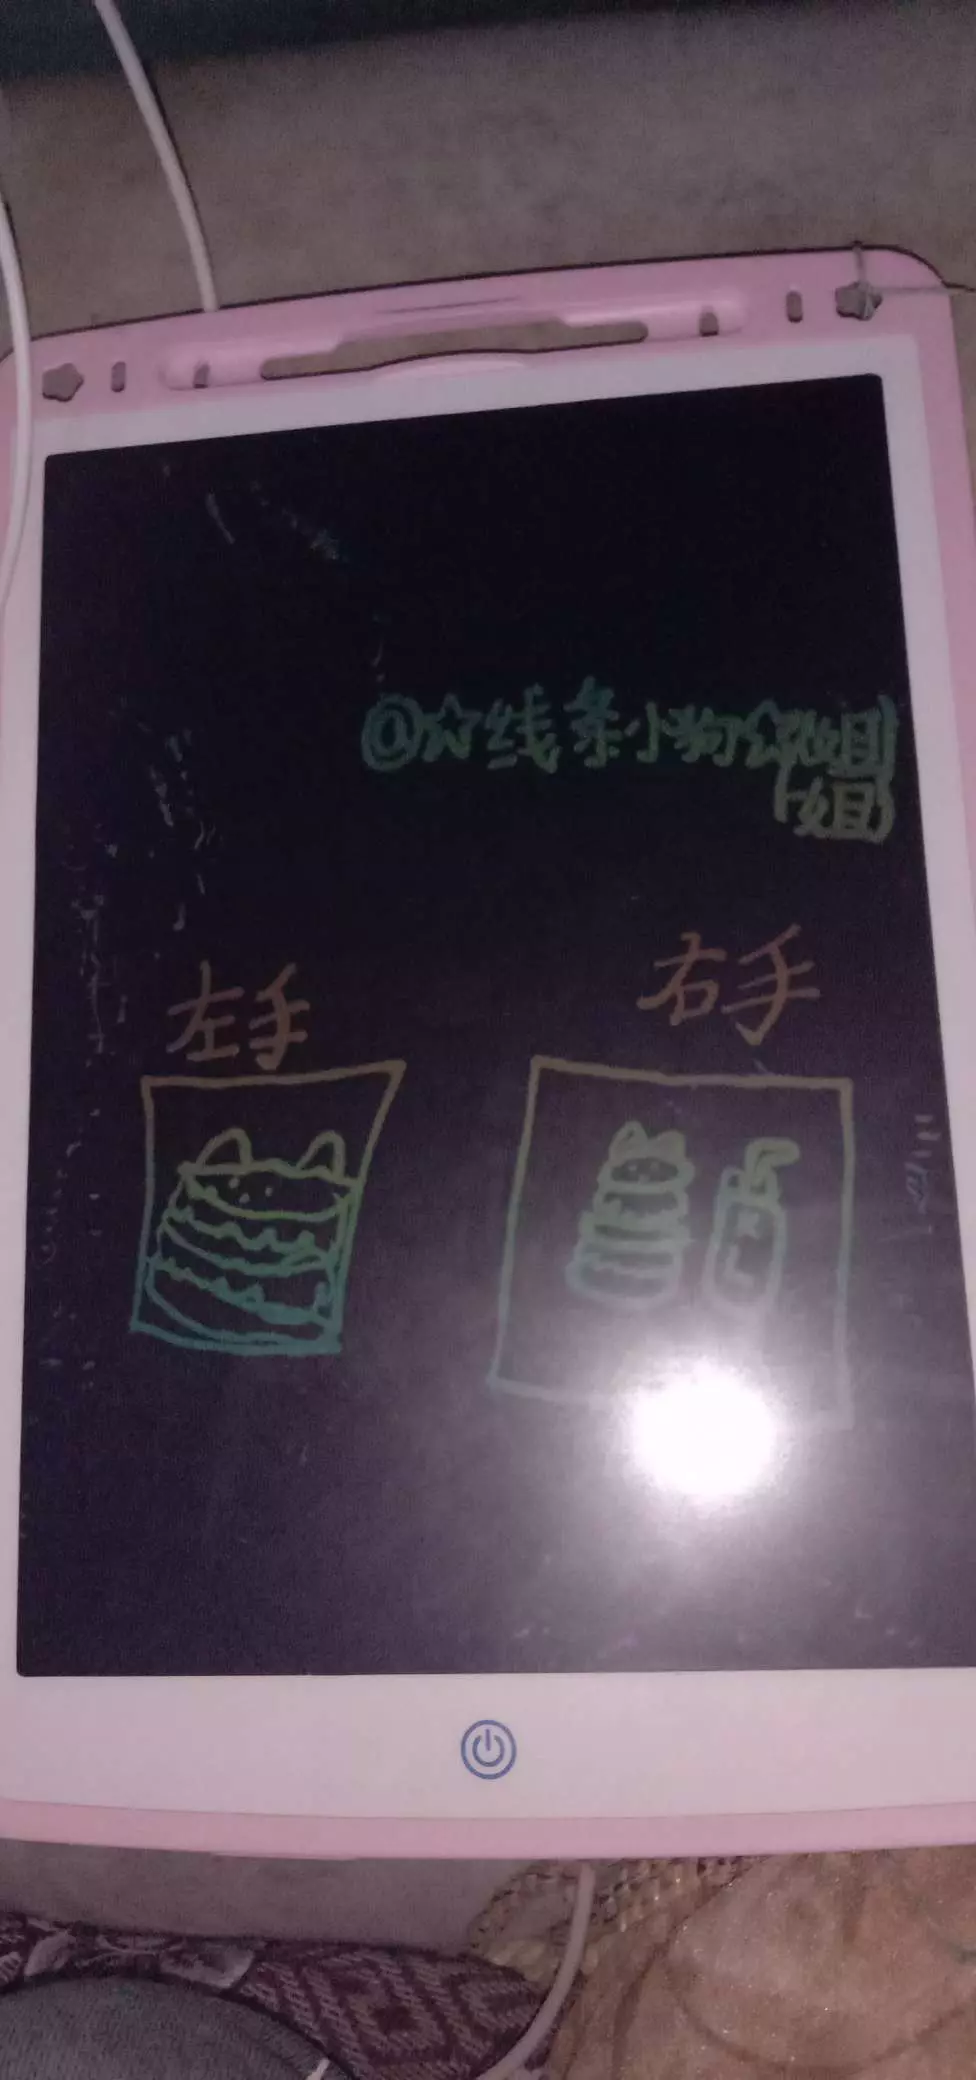 @☆线条小狗☆(姐)
(姐)
左手
右手